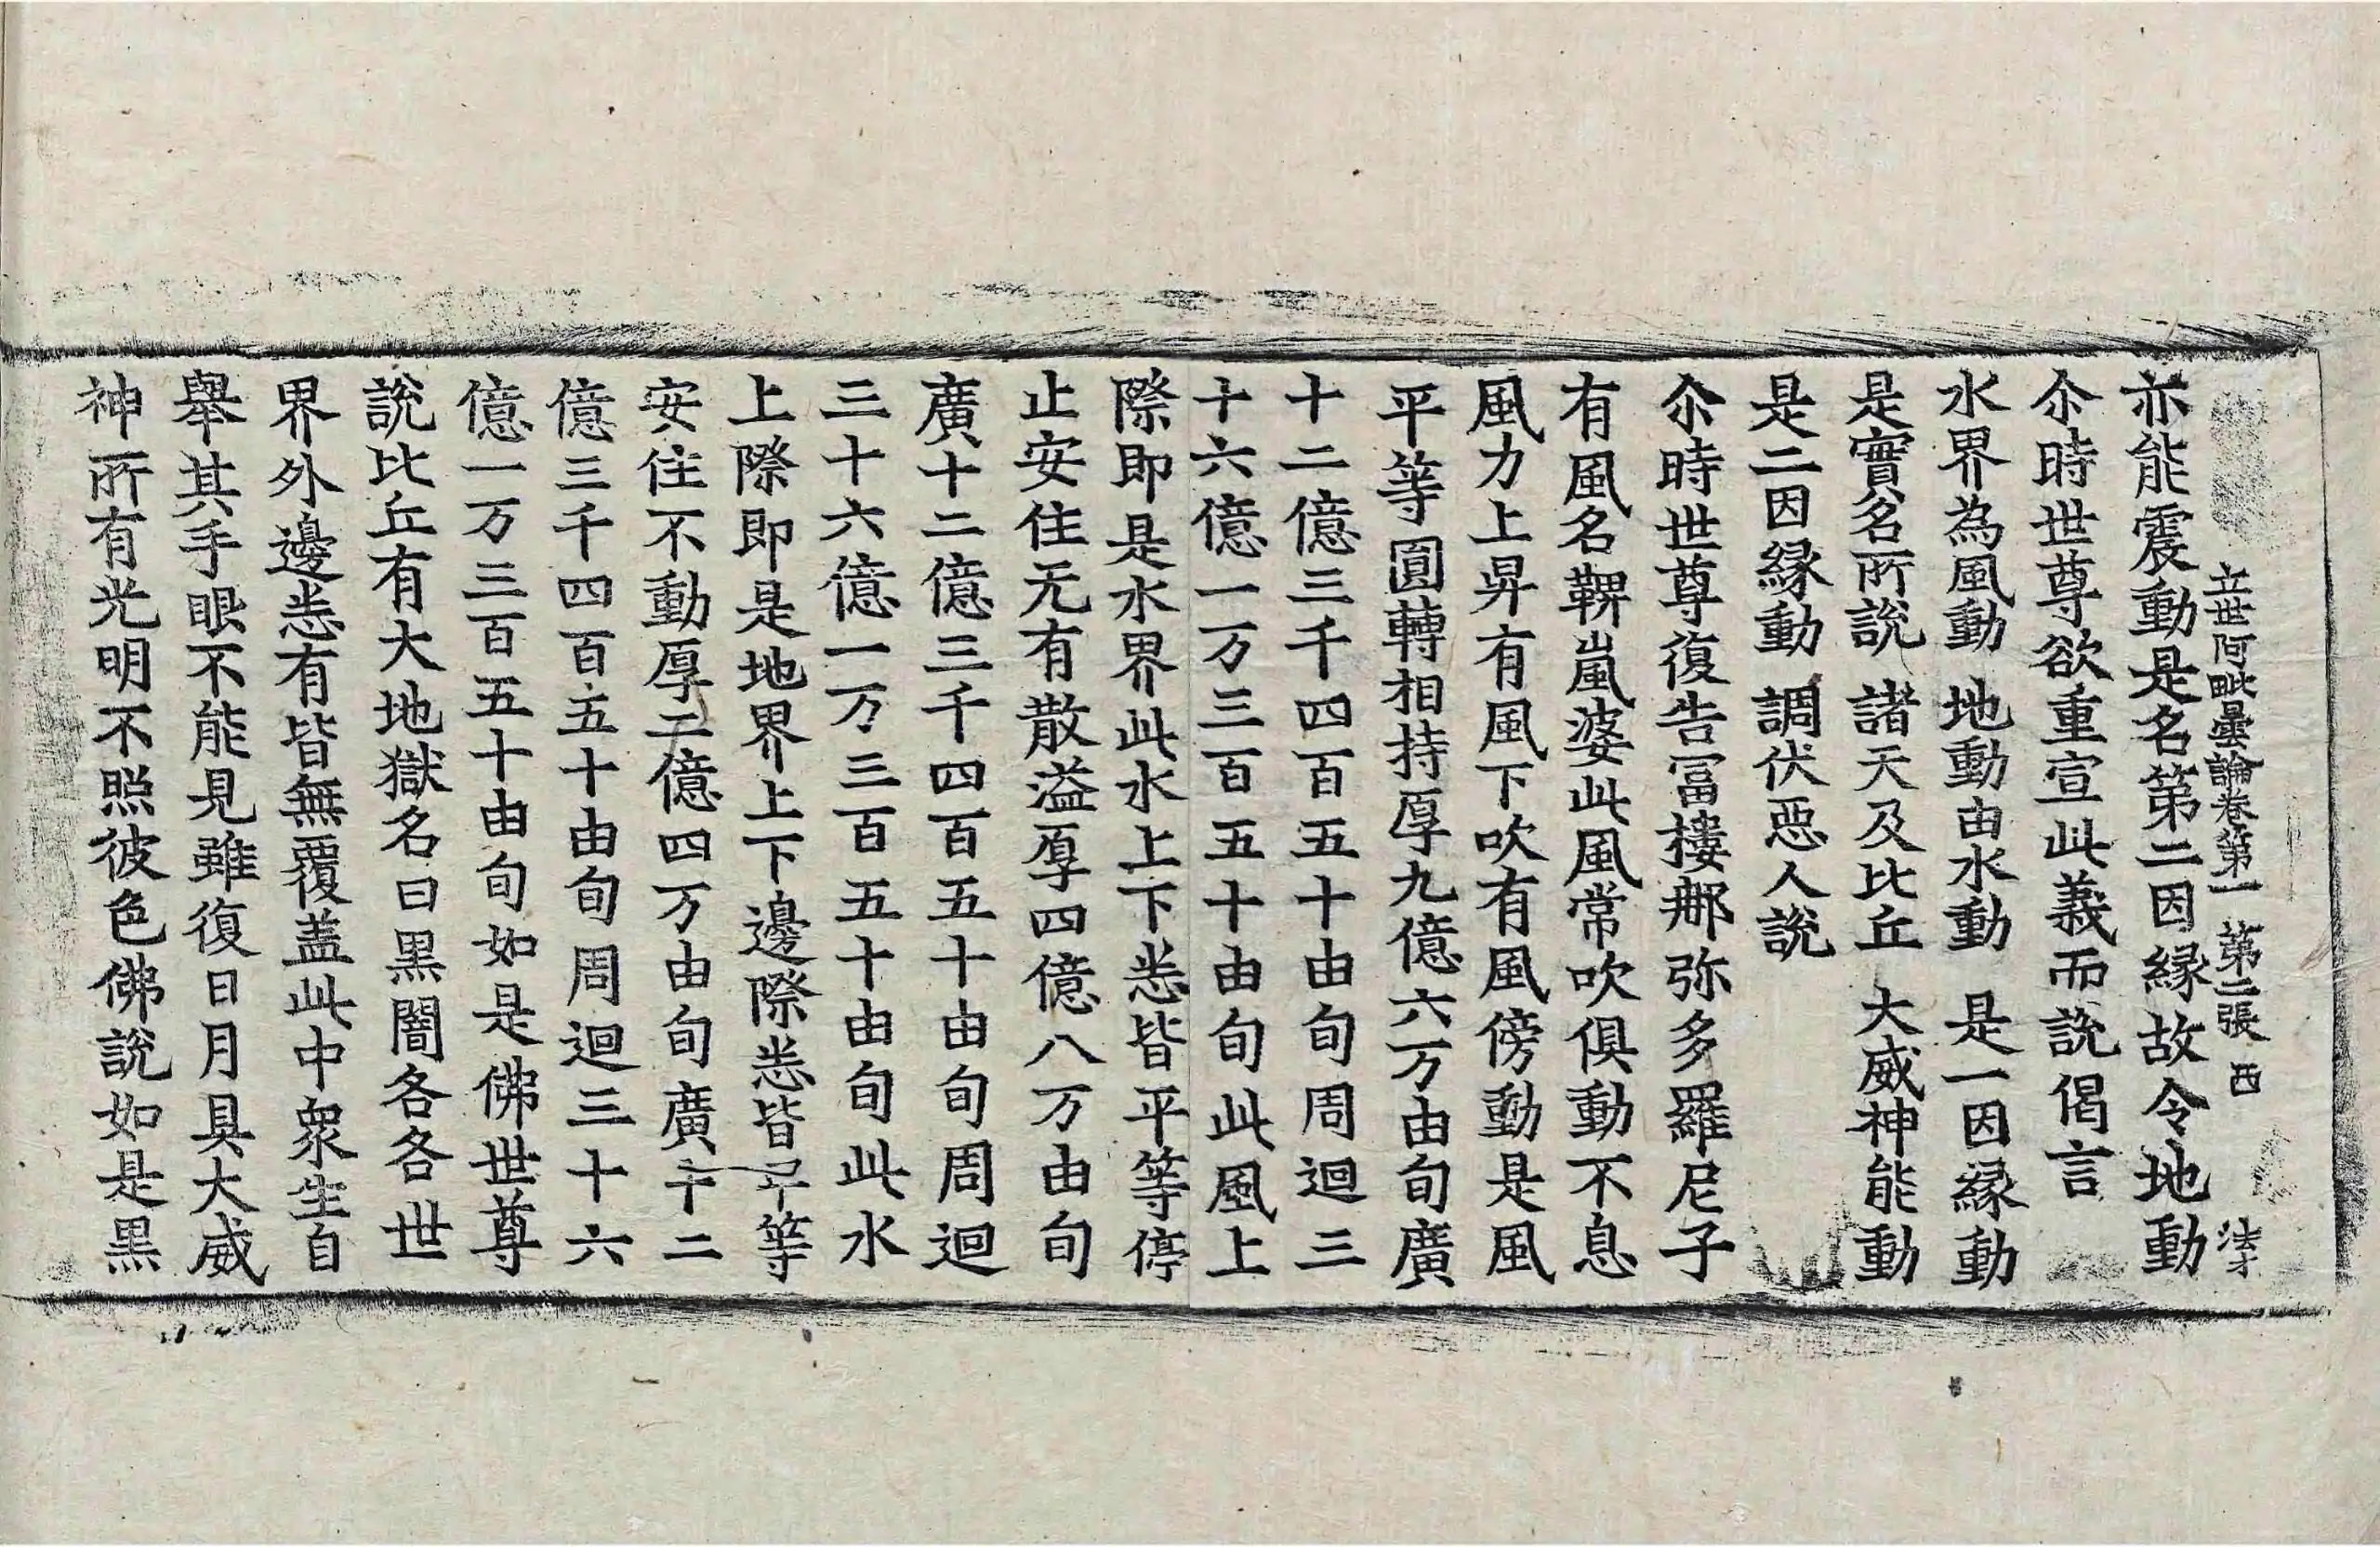 立世阿毗曇論卷第一 第二張 西 法才
亦能震動是名第二因緣故令地動
尒時世尊欲重宣此義而說偈言
水界為風動 地動由水動 是一因緣動
是實名所說 諸天及比丘 大威神能動
是二因緣動 調伏惡人說
尒時世尊復告冨樓那弥多羅尼子
有風名鞞嵐婆此風常吹俱動不息
風力上昇有風下吹有風傍動是風
平等圓轉相持厚九億六万由旬廣
十二億三千四百五十由旬周迴三
十六億一万三百五十由旬此風上
際即是水界此水上下悉皆平等停
止安住无有散溢厚四億八万由旬
廣十二億三千四百五十由旬周迴
三十六億一万三百五十由旬此水
上際即是地界上下邊際悉皆平等
安住不動厚二億四万由旬廣十二
億三千四百五十由旬周迴三十六
億一万三百五十由旬如是佛世尊
說比丘有大地獄名曰黑闇各各世
界外邊悉有皆無覆盖此中衆生自
舉其手眼不能見雖復日月具大威
神所有光明不照彼色佛說如是黑